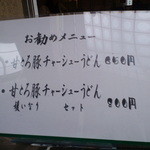 お勧めメニュー
・甘とろ豚チャーシューうどん 650円
・甘とろ豚チャーシューうどん
焼いなり セット 800円